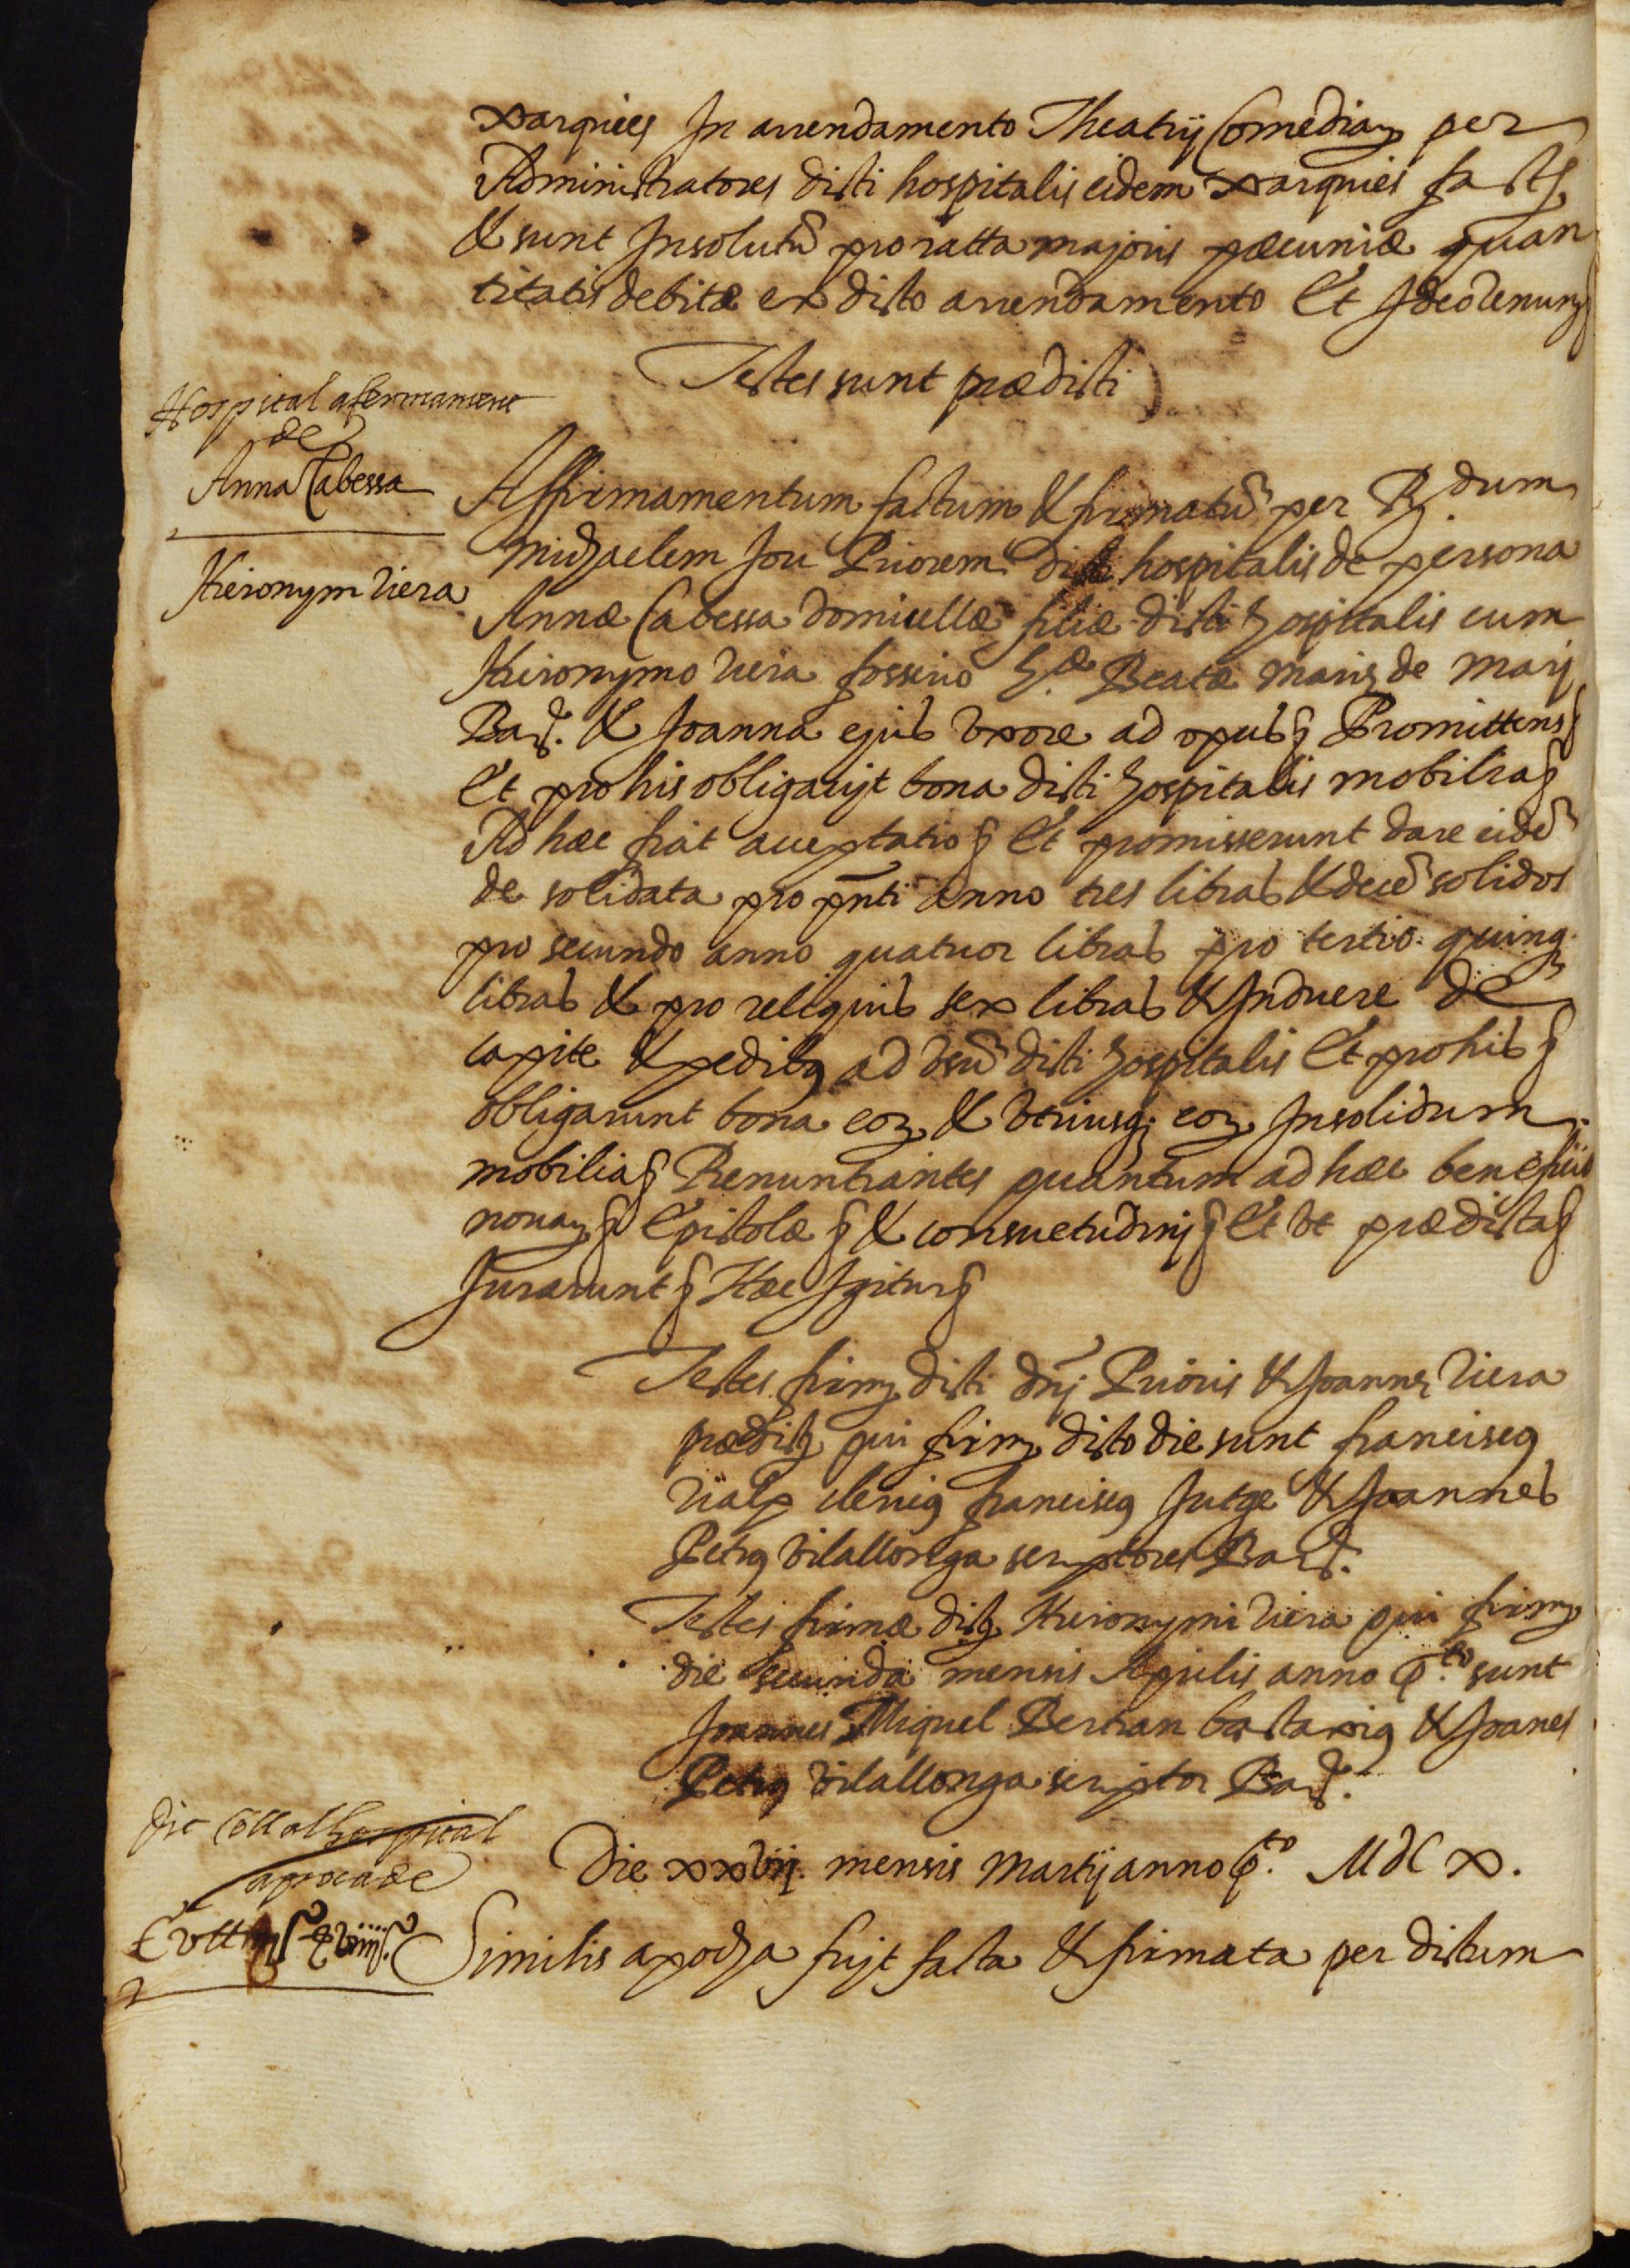 Xarquies In arrendamento Theatrij Comediaꝝ per
Administratores dicti hospitalis eidem Xarquies facto
& sunt Insolutũ pro ratta majoris pæcuniæ quan
titatis debitæ ex dicto arrendamento Et Ideo renunꝭ
Testes sunt prædicti
Hospital afermament
de
Anna Cabessa
Hieronym Viera
Affirmamentum factum & firmatũ per R.dum
Michaelem Jou Priorem dicti hospitalis de persona
Annæ Cabessa domicellæ filiæ dicti hospitalis cum
Hieronymo Viera fosserio Ecc.æ Beatæ Mariæ de Mari
Barꝭ. & Joanna ejus Vxore ad opusꝭ Promittensꝭ
Et pro his obligavit bona dicti hospitalis mobiliaꝭ
Ad hæc fiat acceptatioꝭ Et promisserunt dare eidẽ
de solidata pro pñti anno tres libras & decẽ solidos
pro secundo anno quatuor libras pro tertio quinqꝫ
libras & pro reliquis sex libras & Induere de
capite & pedibꝰ ad Vsũ dicti hospitalis Et pro hisꝭ
obligarunt bona eoꝝ & Vtriusqꝫ eoꝝ Insolidum
mobiliaꝭ Renuntiantes quantum ad hæc beneficiis
novaꝝꝭ Epistolæꝭ & consuetudinjꝭ Et Vt prædictaꝭ
Juraruntꝭ Hæc Igiturꝭ
Testes firmæ dicti dñj Prioris & Joannæ Viera
prædictæ qui firmꝭ dicto die sunt franciscꝰ
Vialp clericꝰ franciscꝰ Jutge & Joannes
Petrꝰ Vilallonga scriptores Barꝭ.
Testes firmæ dicti Hieronymi Viera qui firmꝭ
die secunda mensis Aprilis anno q.to sunt
Joannes Miquel Bertran bastaxiꝰ & Joanes
Petrꝰ Vilallonga scriptor Barꝭ.
hospital
apoca de
Die xxvij. mensis Martij anno q.to MdC x.
Similis apocha fuit facta & firmata per dictum